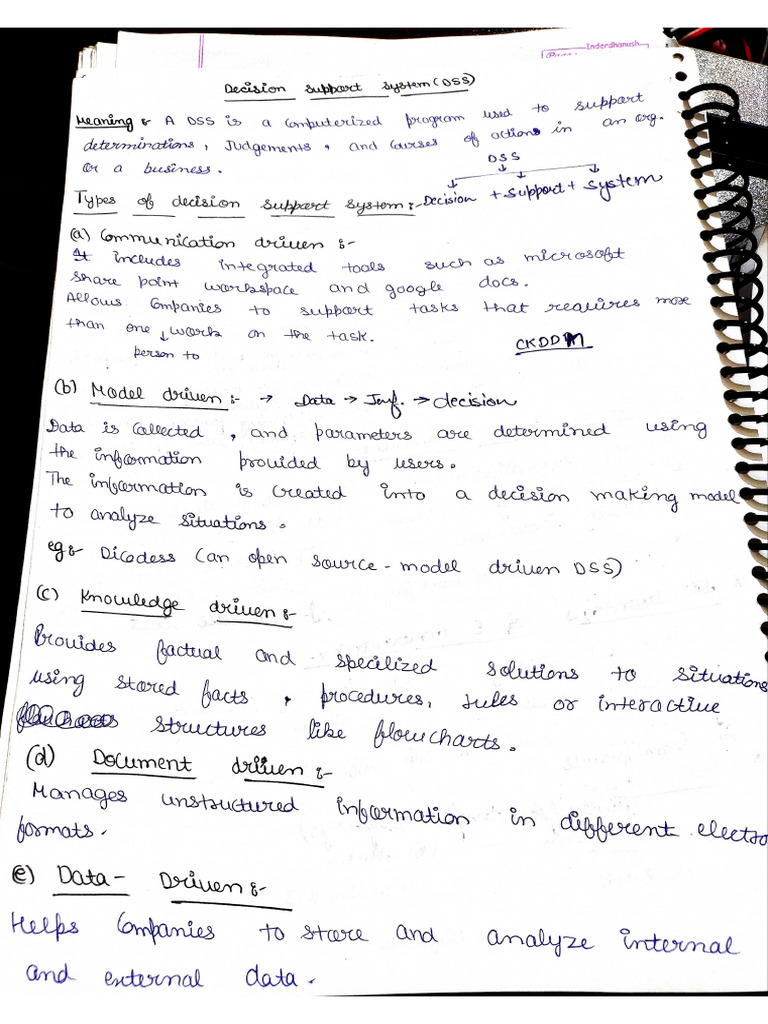 Inderdhanush
Decision Support System (DSS)
Meaning :- A DSS is a computerized program used to support
determinations, Judgements, and Courses of actions in an org.
or a business.
DSS
Types of decision support system :- Decision + Support + System
(a) Communication driven :-
It includes integrated tools such as microsoft
share point workspace and google docs.
Allows Companies to support tasks that requires more
than one ↓ work on the task.
person to
CKDDM
(b) Model driven :- → Data → Inf. → decision
Data is Collected, and parameters are determined using
the information provided by users.
The information is created into a decision making model
to analyze situations.
eg:- Dicodess (an open source - model driven DSS)
(c) Knowledge driven :-
Provides factual and specilized solutions to situations
using stored facts, procedures, rules or interactive
structures like flowcharts.
(d) Document driven :-
Manages unstructured information in different electro
formats.
(e) Data - Driven :-
Helps Companies to store and analyze internal
and external data.